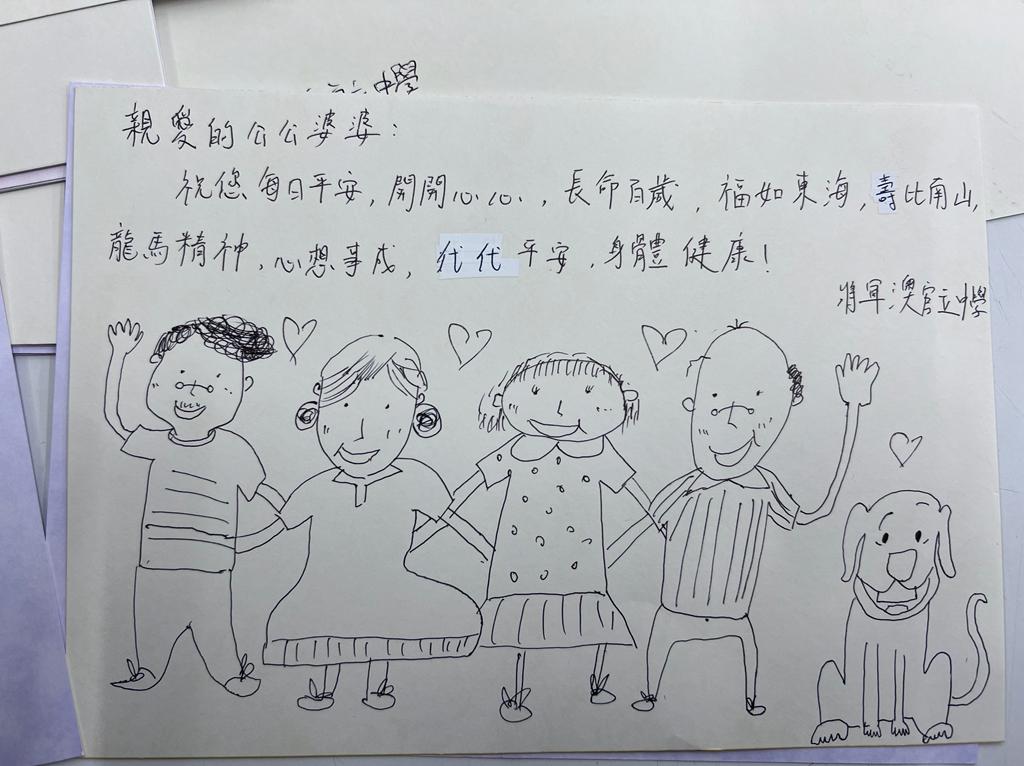 中學
親愛的公公婆婆:
祝您每日平安,開開心心,長命百歲,福如東海,壽比南山,
龍馬精神,心想事成,代代平安,身體健康!
將軍澳官立中學